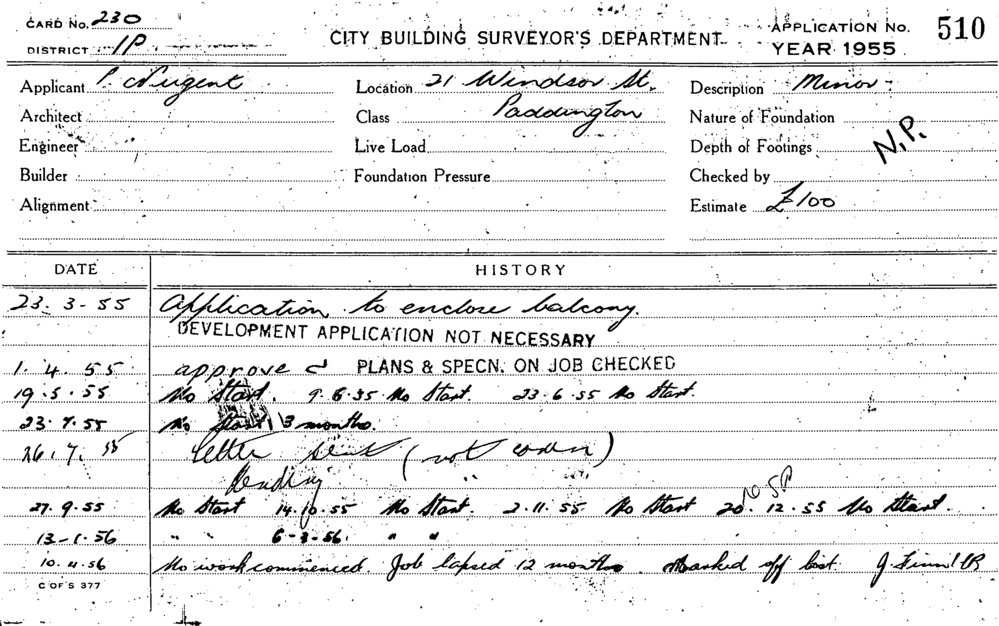 CARD No. 230
DISTRICT 1P
CITY BUILDING SURVEYOR'S DEPARTMENT
APPLICATION No. 510
YEAR 1955
Applicant P. Nugent Location 21 Windsor St. Description Minor
Architect Class Paddington Nature of Foundation
Engineer Live Load Depth of Footings N.P.
Builder Foundation Pressure Checked by
Alignment Estimate £100
DATE HISTORY
23.3.55 Application to enclose balcony.
DEVELOPMENT APPLICATION NOT NECESSARY
1.4.55 approved PLANS & SPECN. ON JOB CHECKED
19.5.55 No Start. 9.6.55 No Start. 23.6.55 No Start.
23.7.55 No Start 3 months.
26.7.55 letter sent (not)
Pending "
27.9.55 No Start 14.10.55 No Start. 2.11.55 No Start 20.12.55 No Start.
13-1.56 " " 6-3-56. " "
10.4.56 No work commenced. Job lapsed 12 months. Marked off list. J.
C OF S 377